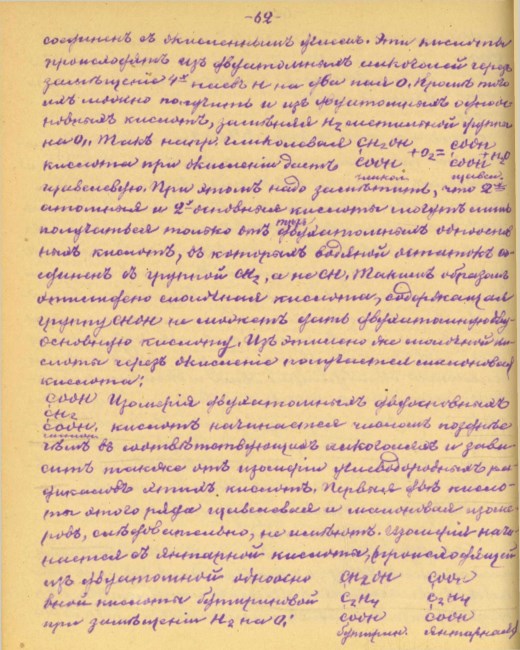 -62-
соединен съ окисленнымъ углемъ. Эти кислоты
происходятъ изъ двуатомныхъ алкоголей черезъ
замѣщеніе 4х паевъ Н на два пая О. Кромѣ того
ихъ можно получить и изъ двуатомныхъ одноос-
новныхъ кислотъ, замѣняя Н2 метильной группы
на О. Такъ напр. гликолевая CH2OH COOH
кислота при окисленіи даетъ COOH +O2= COOH +H2O
гликол. щавел.
щавелевую. При этомъ надо замѣтить, что 2хъ
атомныя и 2х основныя кислоты могутъ
получаться только отъ тѣхъ двухатомныхъ одноосно-
вныхъ кислотъ, въ которыхъ водяной остатокъ со-
единенъ съ группой CH2, а не CH. Такимъ образомъ
молочная кислота, содержащая
группу CHOH не можетъ дать двухатомную дву-
основную кислоту. Изъ этилено же молочной ки-
слоты черезъ окисленіе получается малоновая
кислота:
COOH Изомерія двухатомныхъ двуосновныхъ
CH2
COOH. кислотъ начинается членомъ позднѣе
чѣмъ въ соотвѣтствующихъ алкоголяхъ и зави-
ситъ также отъ изомеріи углеводородныхъ ра-
дикаловъ этихъ кислотъ. Первыя двѣ кисло-
ты этого ряда щавелевая и малоновая изоме-
ровъ, слѣдовательно, не имѣютъ. Изомерія начи-
нается съ янтарной кислоты, происходящей
изъ двуатомной одноосно- CH2OH COOH
вной кислоты бутириновой C2H4 C2H4
при замѣщеніи Н2 на О: COOH COOH
бутирин. янтарная